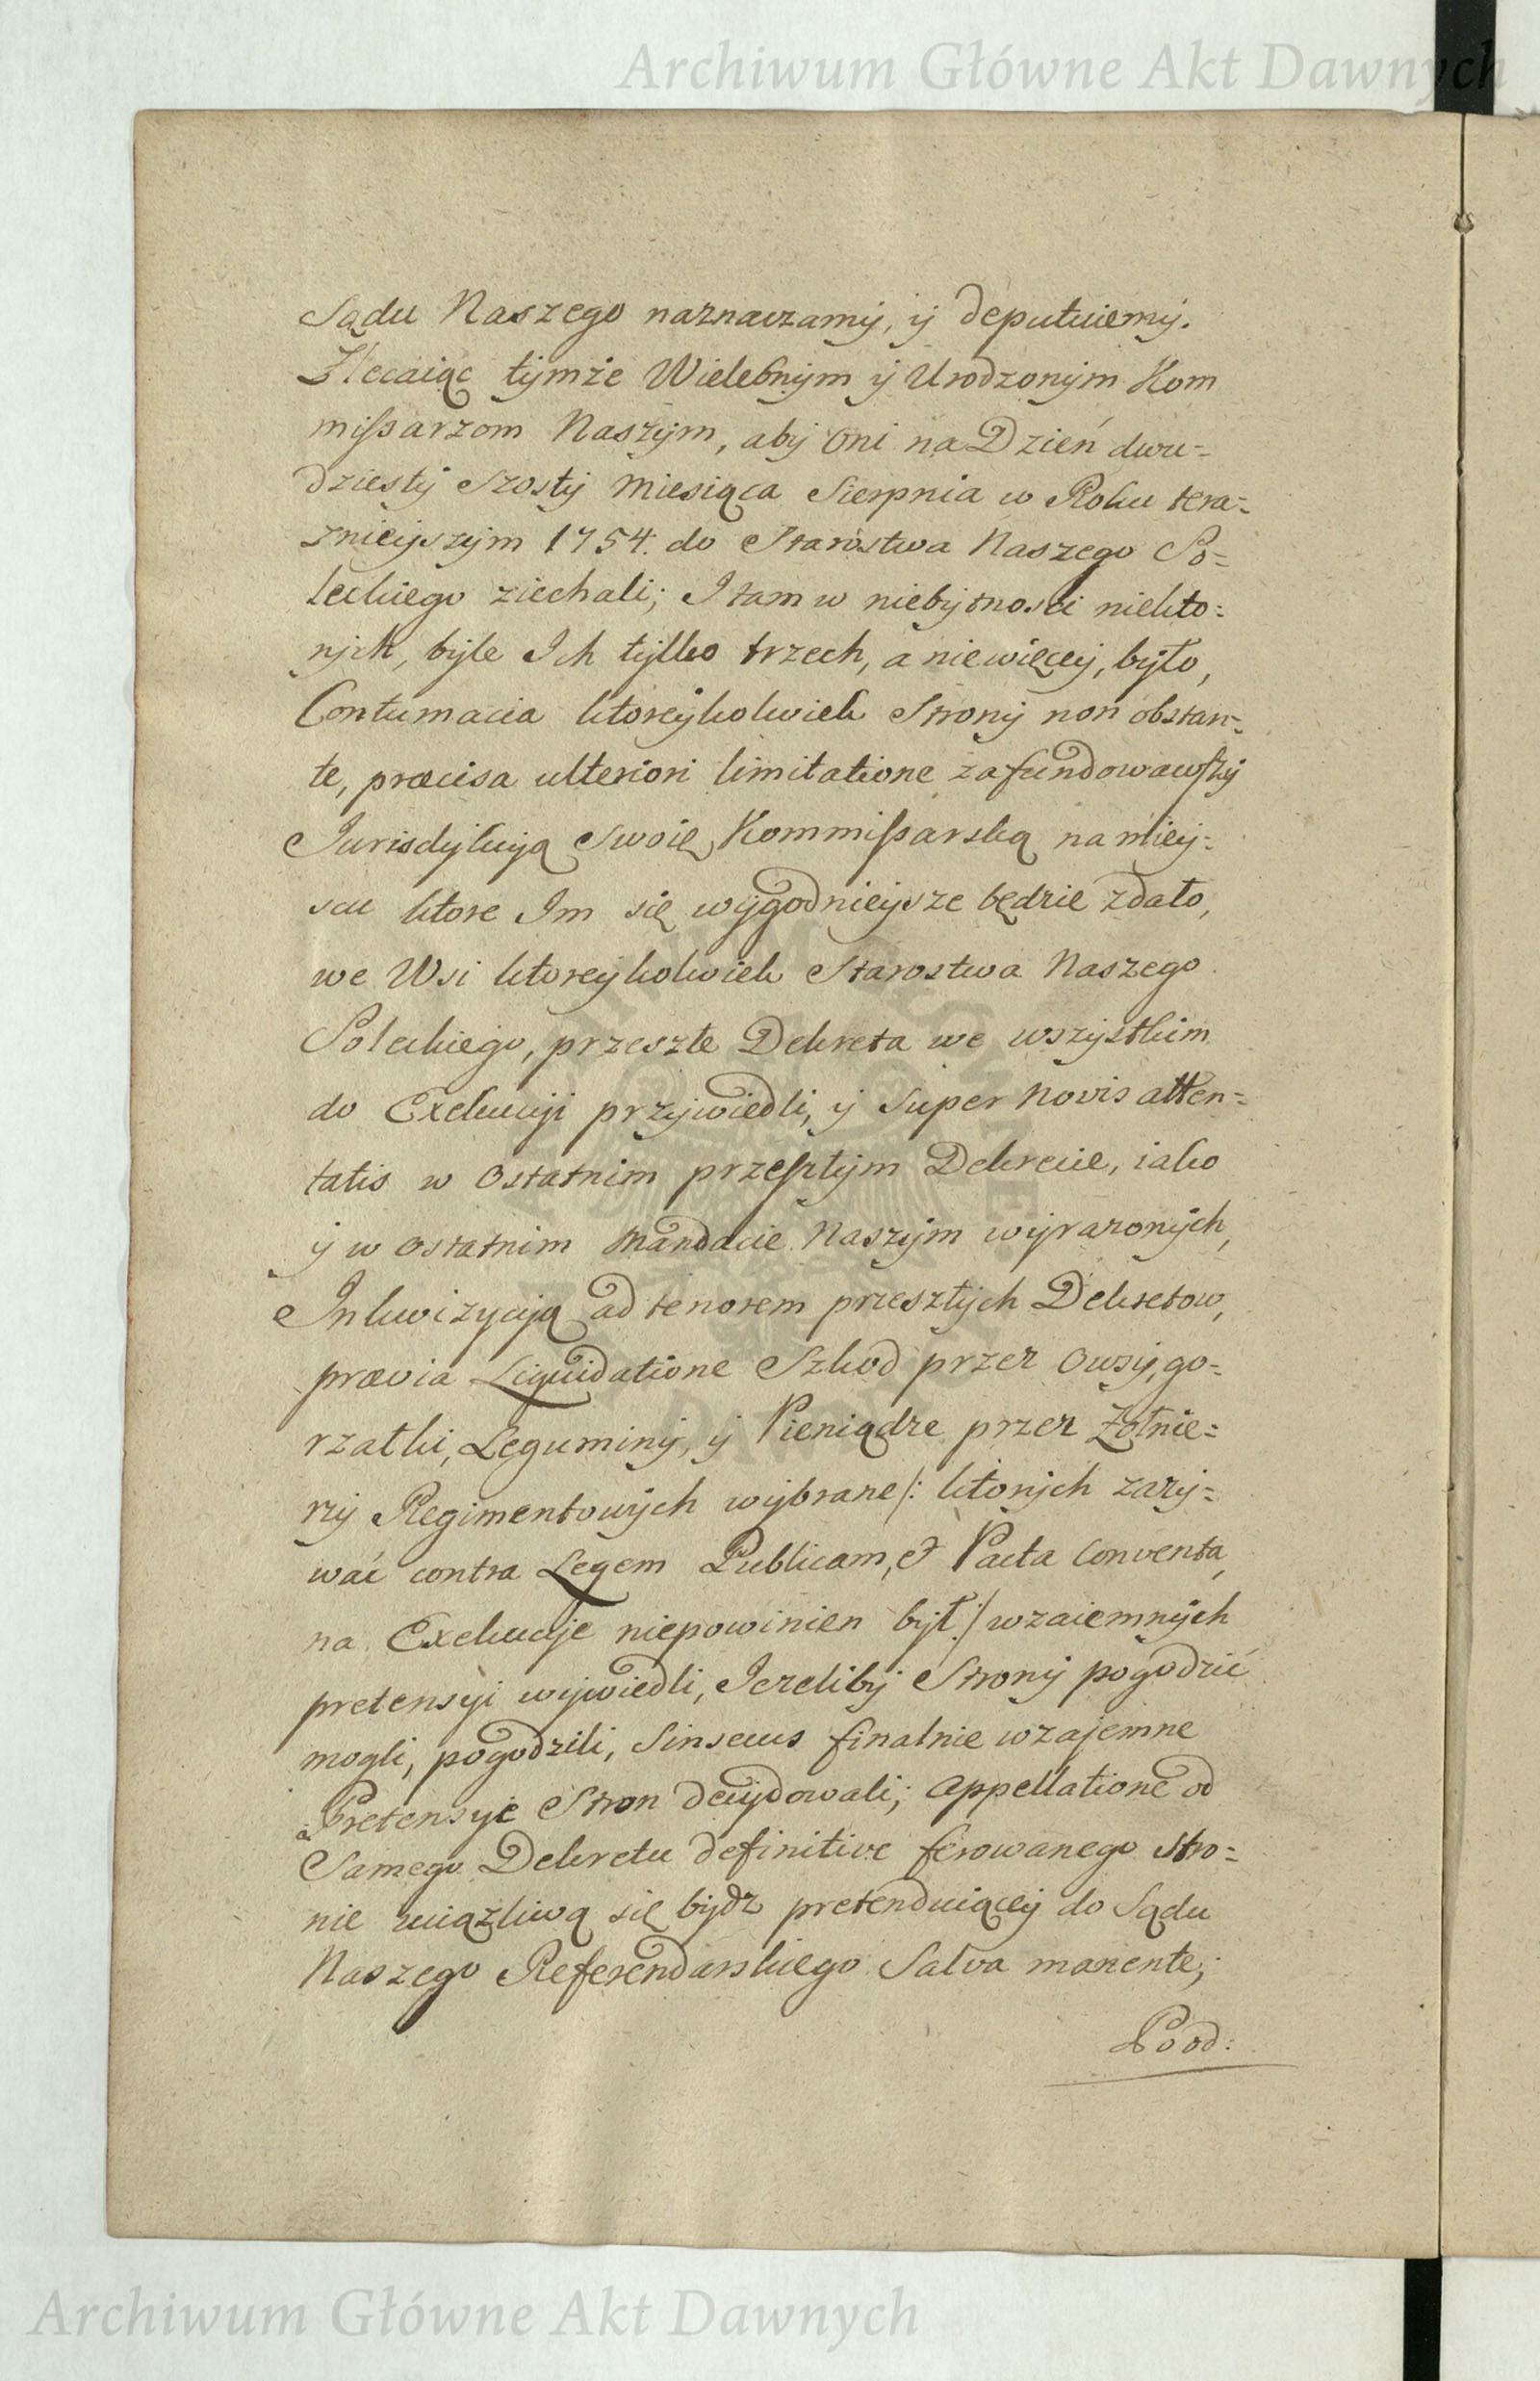 Archiwum Główne Akt Dawnych
Sądu Naszego naznaczamy, y deputuiemy.
Zlecaiąc tymże Wielebnym y Urodzonym Kom
missarzom Naszym, aby oni na Dzień dwu=
dziesty szosty Miesiąca Sierpnia w Roku tera=
znieyszym 1754. do Starostwa Naszego So=
leckiego ziechali; I tam w niebytnosci niekto=
rych, byle Ich tylko trzech, a niewięcey, było,
Contumacia ktoreykolwiek Strony non obstan=
te, præcisa ulteriori limitatione zafundowawszy
Jurisdykcyą Swoię Kommissarską na miey=
scu ktore Im się wygodnieysze będzie zdało,
we Wsi ktoreykolwiek Starostwa Naszego
Soleckiego, przeszłe Dekreta we wszystkim
do Exekucyi przywiedli, y super novis atten=
tatis w ostatnim przeszłym Dekrecie, iako
y w ostatnim Mandacie Naszym wyrazonych,
Inkwizycyą ad tenorem przeszłych Dekretow,
prævia Liquidatione Szkod przez Owsy, go=
rzałki, Leguminy, y Pieniądze przez Żołnie=
rzy Regimentowych wybrane /: ktorych zazy=
wać contra Legem Publicam, et Pacta Conventa,
na Exekucye niepowinien był :/ wzaiemnych
pretensyi wywiedli, Jezeliby Strony pogodzić
mogli, pogodzili, sin secus finalnie wzajemne
Pretensye Stron decydowali; appellatione od
a
Samego Dekretu definitive ferowanego stro=
nie uciążliwą się bydz pretenduiącey do Sądu
Naszego Referendarskiego Salva manente;
Pod:
Archiwum Główne Akt Dawnych